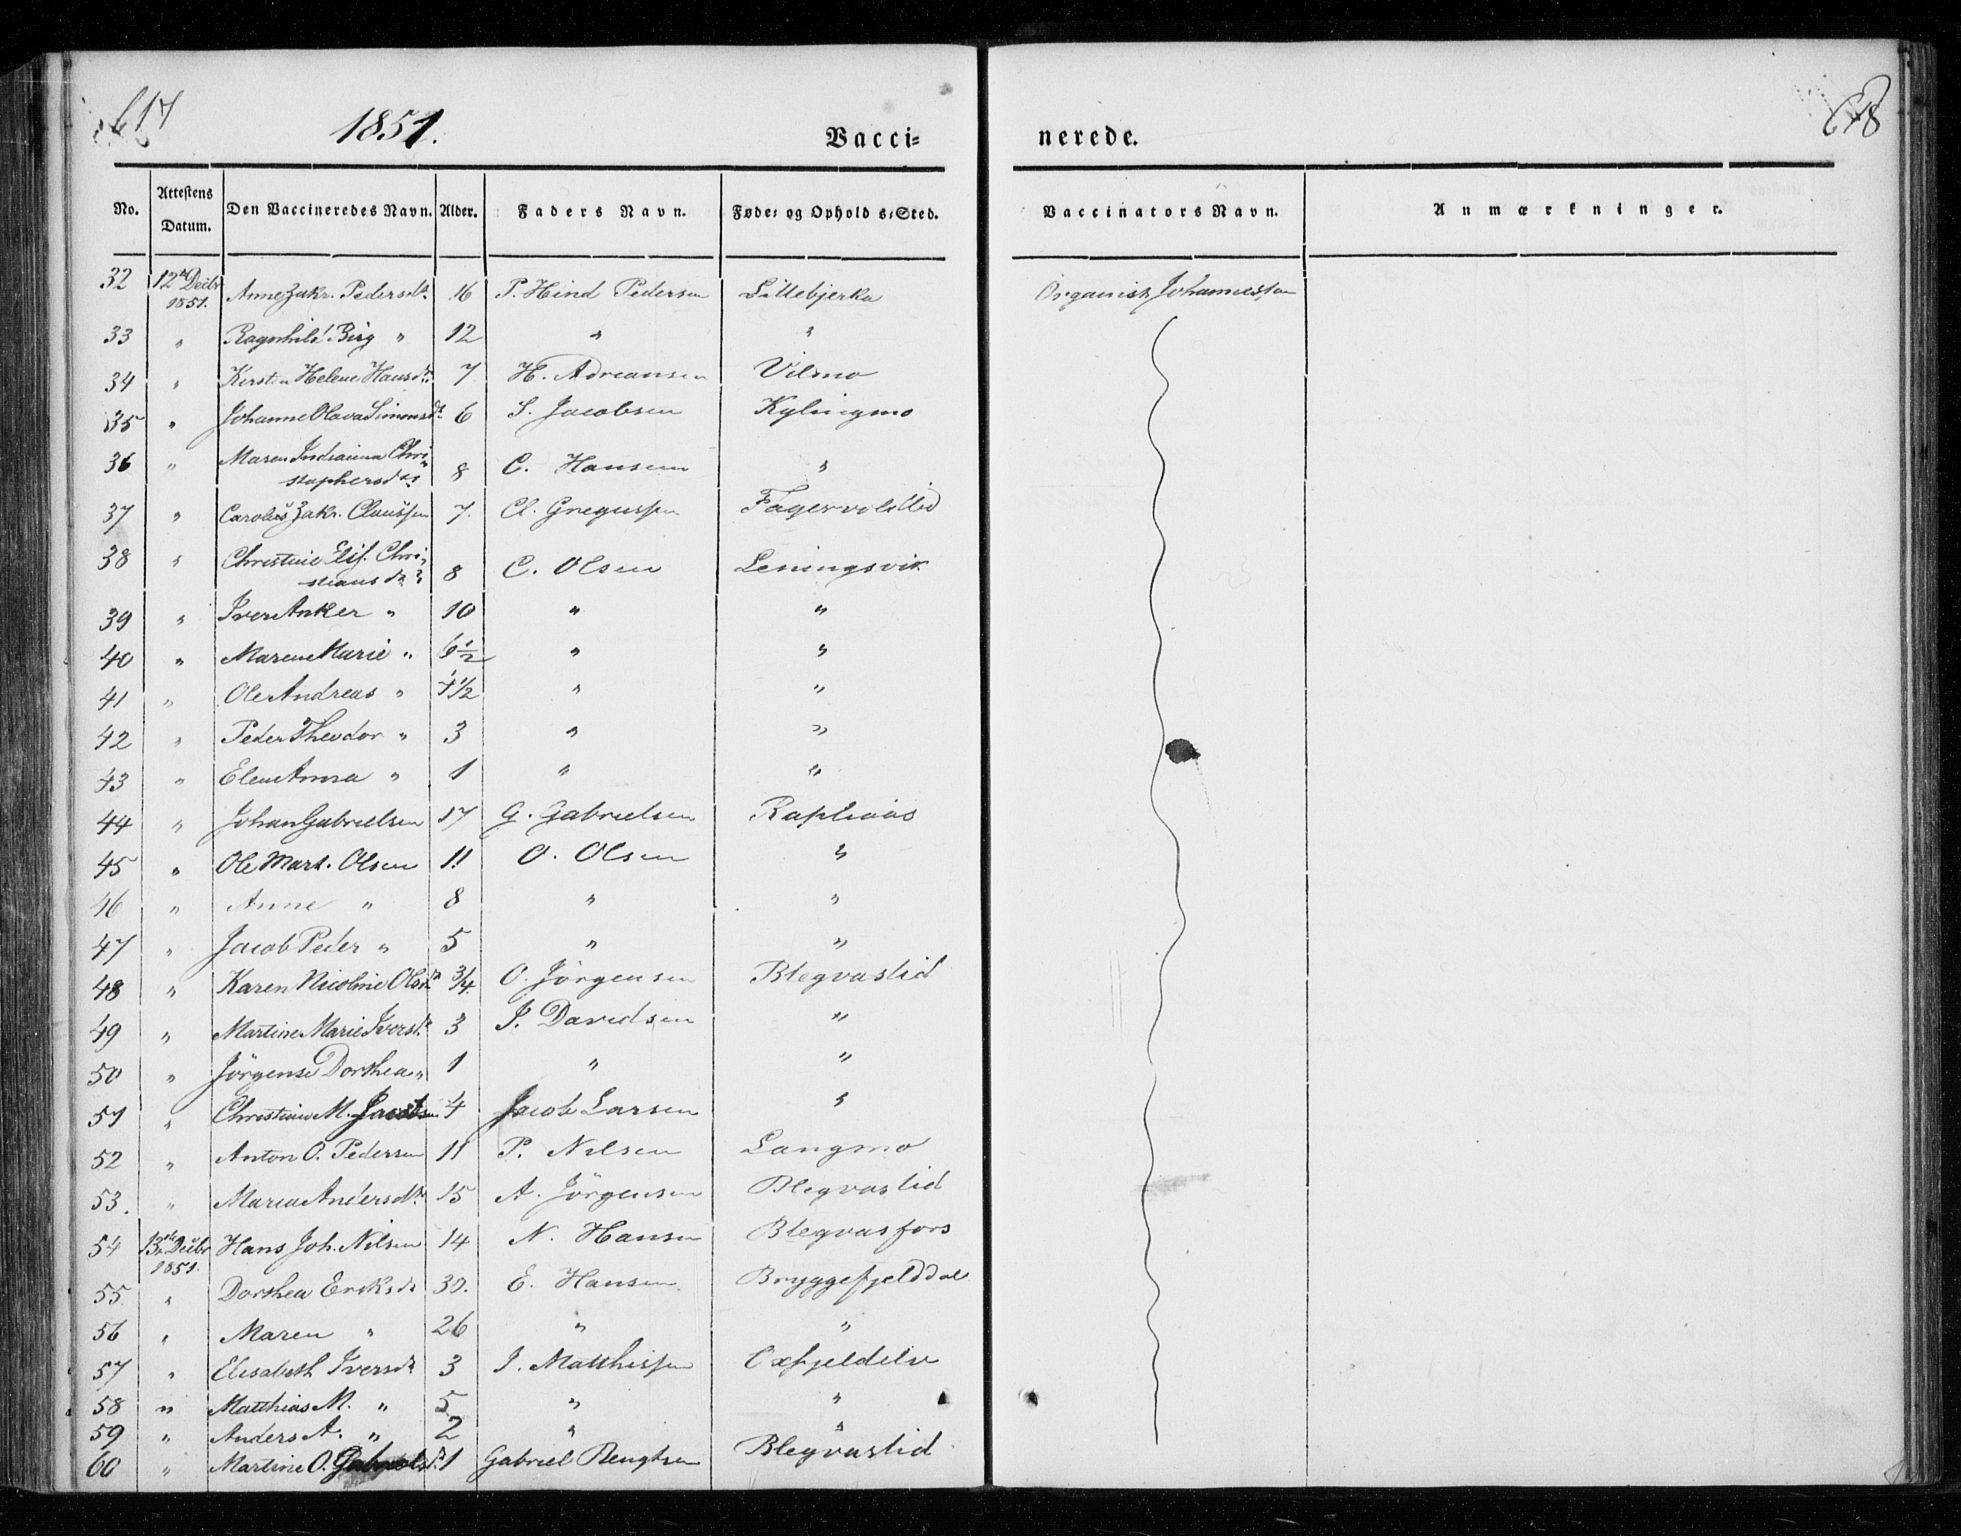 617
1851.
Vacci-
nerede.
618
No.
Attestens Datum.
Den Vaccineredes Navn.
Alder.
Faders Navn.
Føde- og Opholds-Sted.
Vaccinators Navn.
Anmærkninger.
32 12te Decbr 1851. Anne Zakr. Pedersdtr. 16 P. Hind Pedersen Lillebjerka Organist Johannessen
33 " Ragnhild Birg " 12 " "
34 " Kersten Helene Hansdtr. 7 H. Adreansen Vilmo
35 " Johanne Olava Simonsdtr 6 S. Jacobsen Kylingmo
36 " Maren Indianna Chri-
stophersdtr 8 C. Hansen "
37 " Carolus Zakr. Claussen 7. Cl. Gregussen Fagervolllid
38 " Christine Elis. Chri-
stiansdtr 8 C. Olsen Leningsvik
39 " Iver Anker " 10 " "
40 " Maren Marie " 6 1/2 " "
41 " Ole Andreas " 4 1/2 " "
42 " Peder Theodor " 3 " "
43 " Elen Anna " 1 " "
44 " Johan Gabrielsen 17 G. Gabrielsen Rapliaas
45 " Ole Mart. Olsen 11 O. Olsen "
46 " Anne " 8 " "
47 " Jacob Peder " 5 " "
48 " Karen Nicoline Olsdtr 3/4 O. Jörgensen Blegvaslid
49 " Martine Marie Iversdtr 3 I. Davidsen "
50 " Jörgense Dorthea " 1 " "
51 " Christine M. Jacobsen 4 Jacob Larsen "
52 " Anton O. Pedersen 11 P. Nilsen Langmo
53. " Maria Andersdtr 15 A. Jörgensen Blegvaslid
54 13de Decbr 1851. Hans Joh. Nilsen 14 N. Hansen Blegvasfors
55 " Dorthea Eriksdtr 30. E. Hansen Bryggefjelddal
56 " Maren " 26 " "
57 " Elisabeth Iversdtr 3 I. Matthissen Oxfjeldelv
58 " Matthias M. " 5 " "
59 " Anders A. " 2 " "
60 " Martine O. Gabrielsdtr. 1 Gabriel Bengtsen Blegvaslid